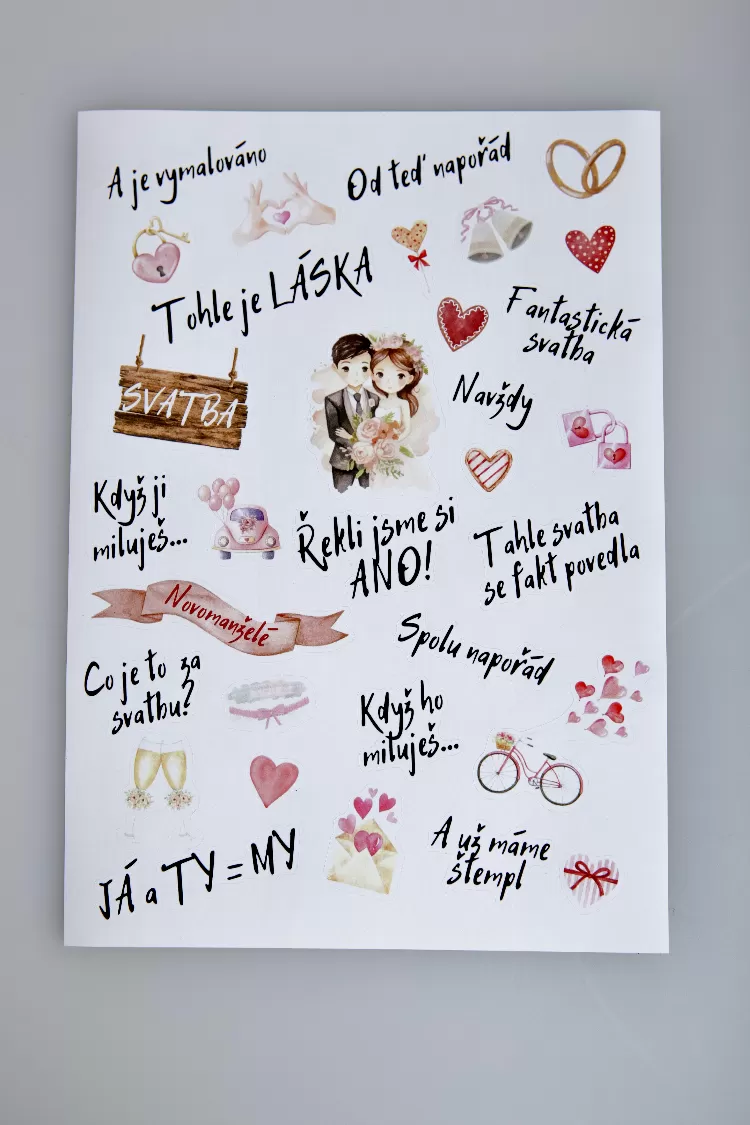 A je vymalováno
Od teď napořád
Tohle je LÁSKA
Fantastická
svatba
SVATBA
Navždy
Když ji
miluješ...
Řekli jsme si
ANO!
Tahle svatba
se fakt povedla
Novomanželé
Spolu napořád
Co je to za
svatbu?
Když ho
miluješ...
JÁ a TY = MY
A už máme
štempl